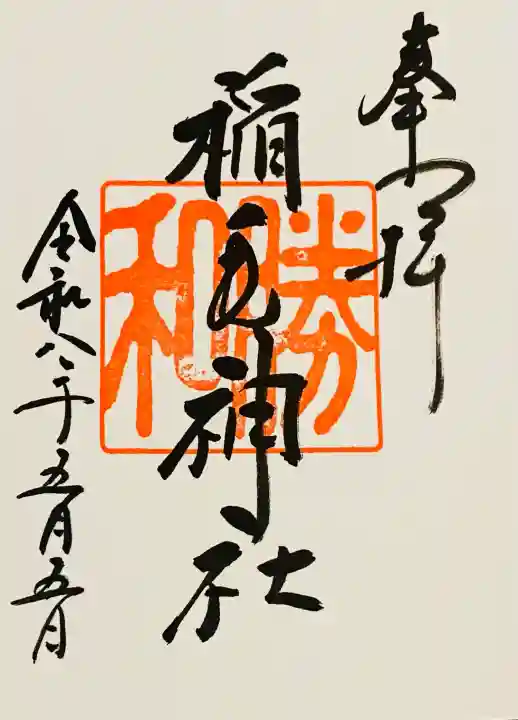 奉拝
稲毛神社
勝和
令和八年五月五日